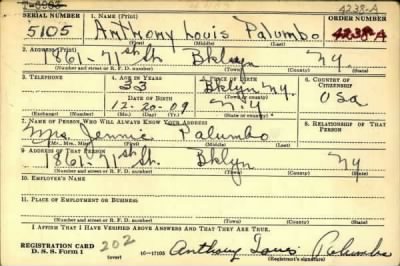 SERIAL NUMBER 1. NAME (Print) ORDER NUMBER
5105 Anthony Louis Palumbo 4238-A 4238-A
(First) (Middle) (Last)
2. ADDRESS (Print)
1861-71st St. Bklyn Ny.
(Number and street or R. F. D. number) (Town) (County) (State)
3. TELEPHONE 4. AGE IN YEARS 5. PLACE OF BIRTH 6. COUNTRY OF CITIZENSHIP
33 Bklyn Ny. USa
DATE OF BIRTH (Town or county)
12-20-09 N.Y
(Exchange) (Number) (Mo.) (Day) (Yr.) (State or country)
7. NAME OF PERSON WHO WILL ALWAYS KNOW YOUR ADDRESS 8. RELATIONSHIP OF THAT PERSON
Mrs. Jennie Palumbo
(Mr., Mrs., Miss) (First) (Middle) (Last)
9. ADDRESS OF THAT PERSON
1861-71st St. Bklyn Ny
(Number and street or R. F. D. number) (Town) (County) (State)
10. EMPLOYER'S NAME
11. PLACE OF EMPLOYMENT OR BUSINESS
(Number and street or R. F. D. number) (Town) (County) (State)
I AFFIRM THAT I HAVE VERIFIED ABOVE ANSWERS AND THAT THEY ARE TRUE.
REGISTRATION CARD 202
D. S. S. Form 1 (over) 16-17105 Anthony Louis Palumbo
(Registrant's signature)